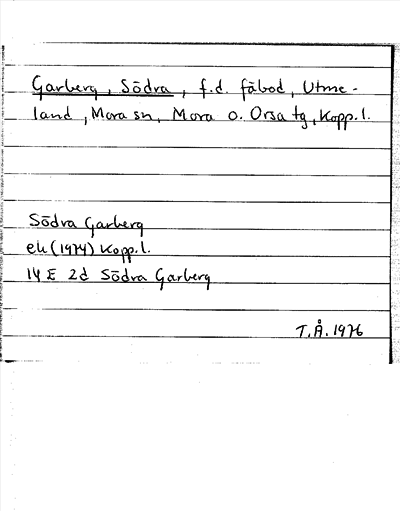 Garberg, Södra, f.d. fäbod, Utme-
land, Mora sn, Mora o. Orsa tg, Kopp.l.
Södra Garberg
ek (1974) Kopp.l.
14 E 2d Södra Garberg
T.Å. 1976